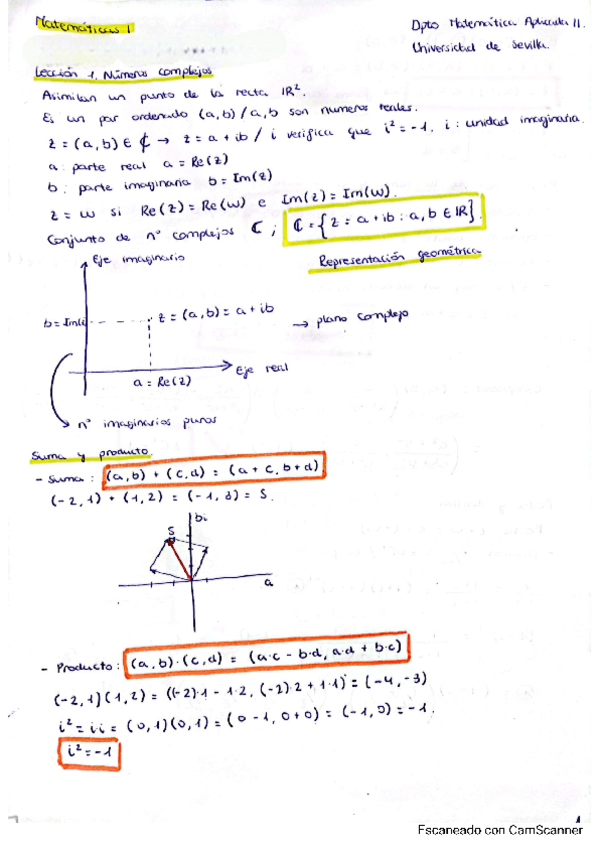 Matemáticas 1
Dpto Matemática Aplicada II.
Universidad de Sevilla.
Lección 1. Números complejos
Asimilan un punto de la recta IR².
Es un par ordenado (a,b) / a,b son numeros reales.
z = (a,b) ∈ ₵ → z = a + ib / i verifica que i² = -1. i: unidad imaginaria.
a: parte real a = Re(z)
b: parte imaginaria b = Im(z)
z = w si Re(z) = Re(w) e Im(z) = Im(w).
Conjunto de nº complejos ℂ ; ℂ = {z = a + ib : a, b ∈ IR}.
Eje imaginario
Representación geométrica
z = (a,b) = a + ib
→ plano complejo
Eje real
a = Re(z)
nº imaginarios puros
Suma y producto.
- Suma : (a,b) + (c,d) = (a + c, b + d)
(-2,1) + (1,2) = (-1,3) = S.
bi
S
a
- Producto: (a,b)·(c,d) = (a·c - b·d, a·d + b·c)
(-2,1)(1,2) = ((-2)·1 - 1·2, (-2)·2 + 1·1) = (-4,-3)
i² = i·i = (0,1)(0,1) = (0 - 1, 0+0) = (-1,0) = -1.
i² = -1
Escaneado con CamScanner